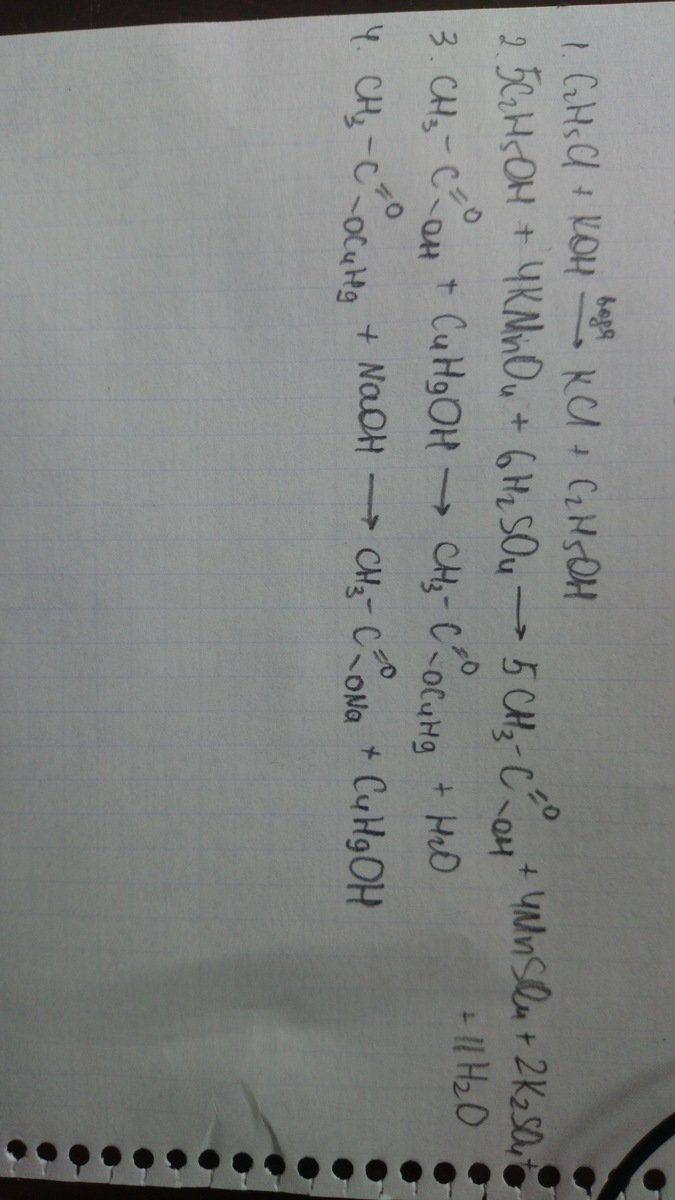 1. C₂H₅Cl + KOH —вода→ KCl + C₂H₅OH
2. 5C₂H₅OH + 4KMnO₄ + 6H₂SO₄ → 5CH₃-C(=O)-OH + 4MnSO₄ + 2K₂SO₄ +
+ 11H₂O
3. CH₃-C(=O)-OH + C₄H₉OH → CH₃-C(=O)-OC₄H₉ + H₂O
4. CH₃-C(=O)-OC₄H₉ + NaOH → CH₃-C(=O)-ONa + C₄H₉OH